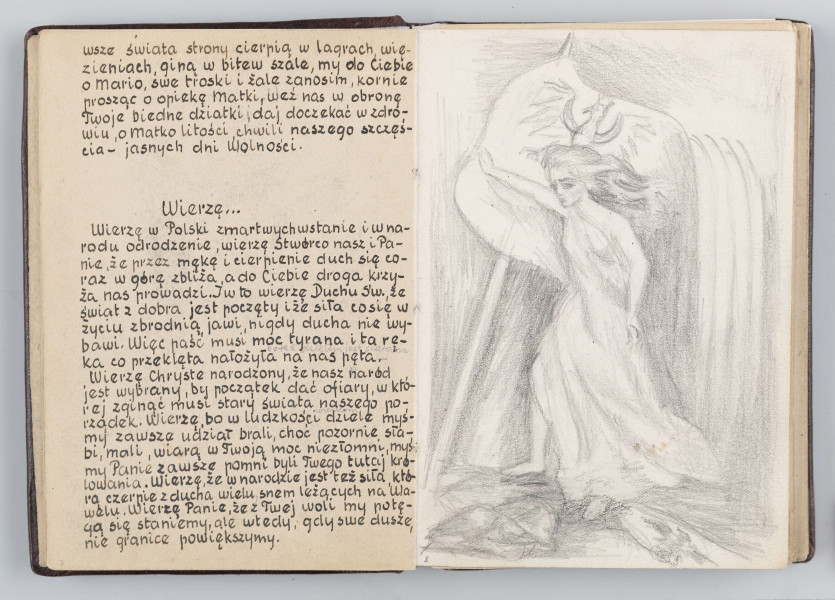 wsze świata strony cierpią w lagrach, wię-
zieniach, giną w bitew szale, my do Ciebie
o Mario, swe troski i żale zanosim, kornie
prosząc o opiekę Matki, weź nas w obronę
Twoje biedne dziatki, daj doczekać w zdro-
wiu, o Matko litości, chwili naszego szczęś-
cia - jasnych dni Wolności.
Wierzę...
Wierzę w Polski zmartwychwstanie i w na-
rodu odrodzenie, wierzę Stwórco nasz i Pa-
nie, że przez mękę i cierpienie duch się co-
raz w górę zbliża, a do Ciebie droga krzy-
ża nas prowadzi. I w to wierzę Duchu Św., że
świat z dobra jest poczęty i że siła co się w
życiu zbrodnią jawi, nigdy ducha nie wy-
bawi. Więc paść musi moc tyrana i ta rę-
ka co przeklęta nałożyła na nas pęta.
Wierzę Chryste narodzony, że nasz naród
jest wybrany, by początek dać ofiary, w któ-
rej zginąć musi stary świata naszego po-
rządek. Wierzę, bo w ludzkości dziele myś-
my zawsze udział brali, choć pozornie sła-
bi, mali, wiarą w Twoją moc niezłomni, myś-
my Panie zawsze pomni byli Twego tutaj kró-
lowania. Wierzę, że w narodzie jest też siła, któ-
rą czerpie z ducha wielu snem leżących na Wa-
welu. Wierzę Panie, że z Twej woli my potę-
gą się staniemy, ale wtedy, gdy swe dusze,
nie granice powiększymy.